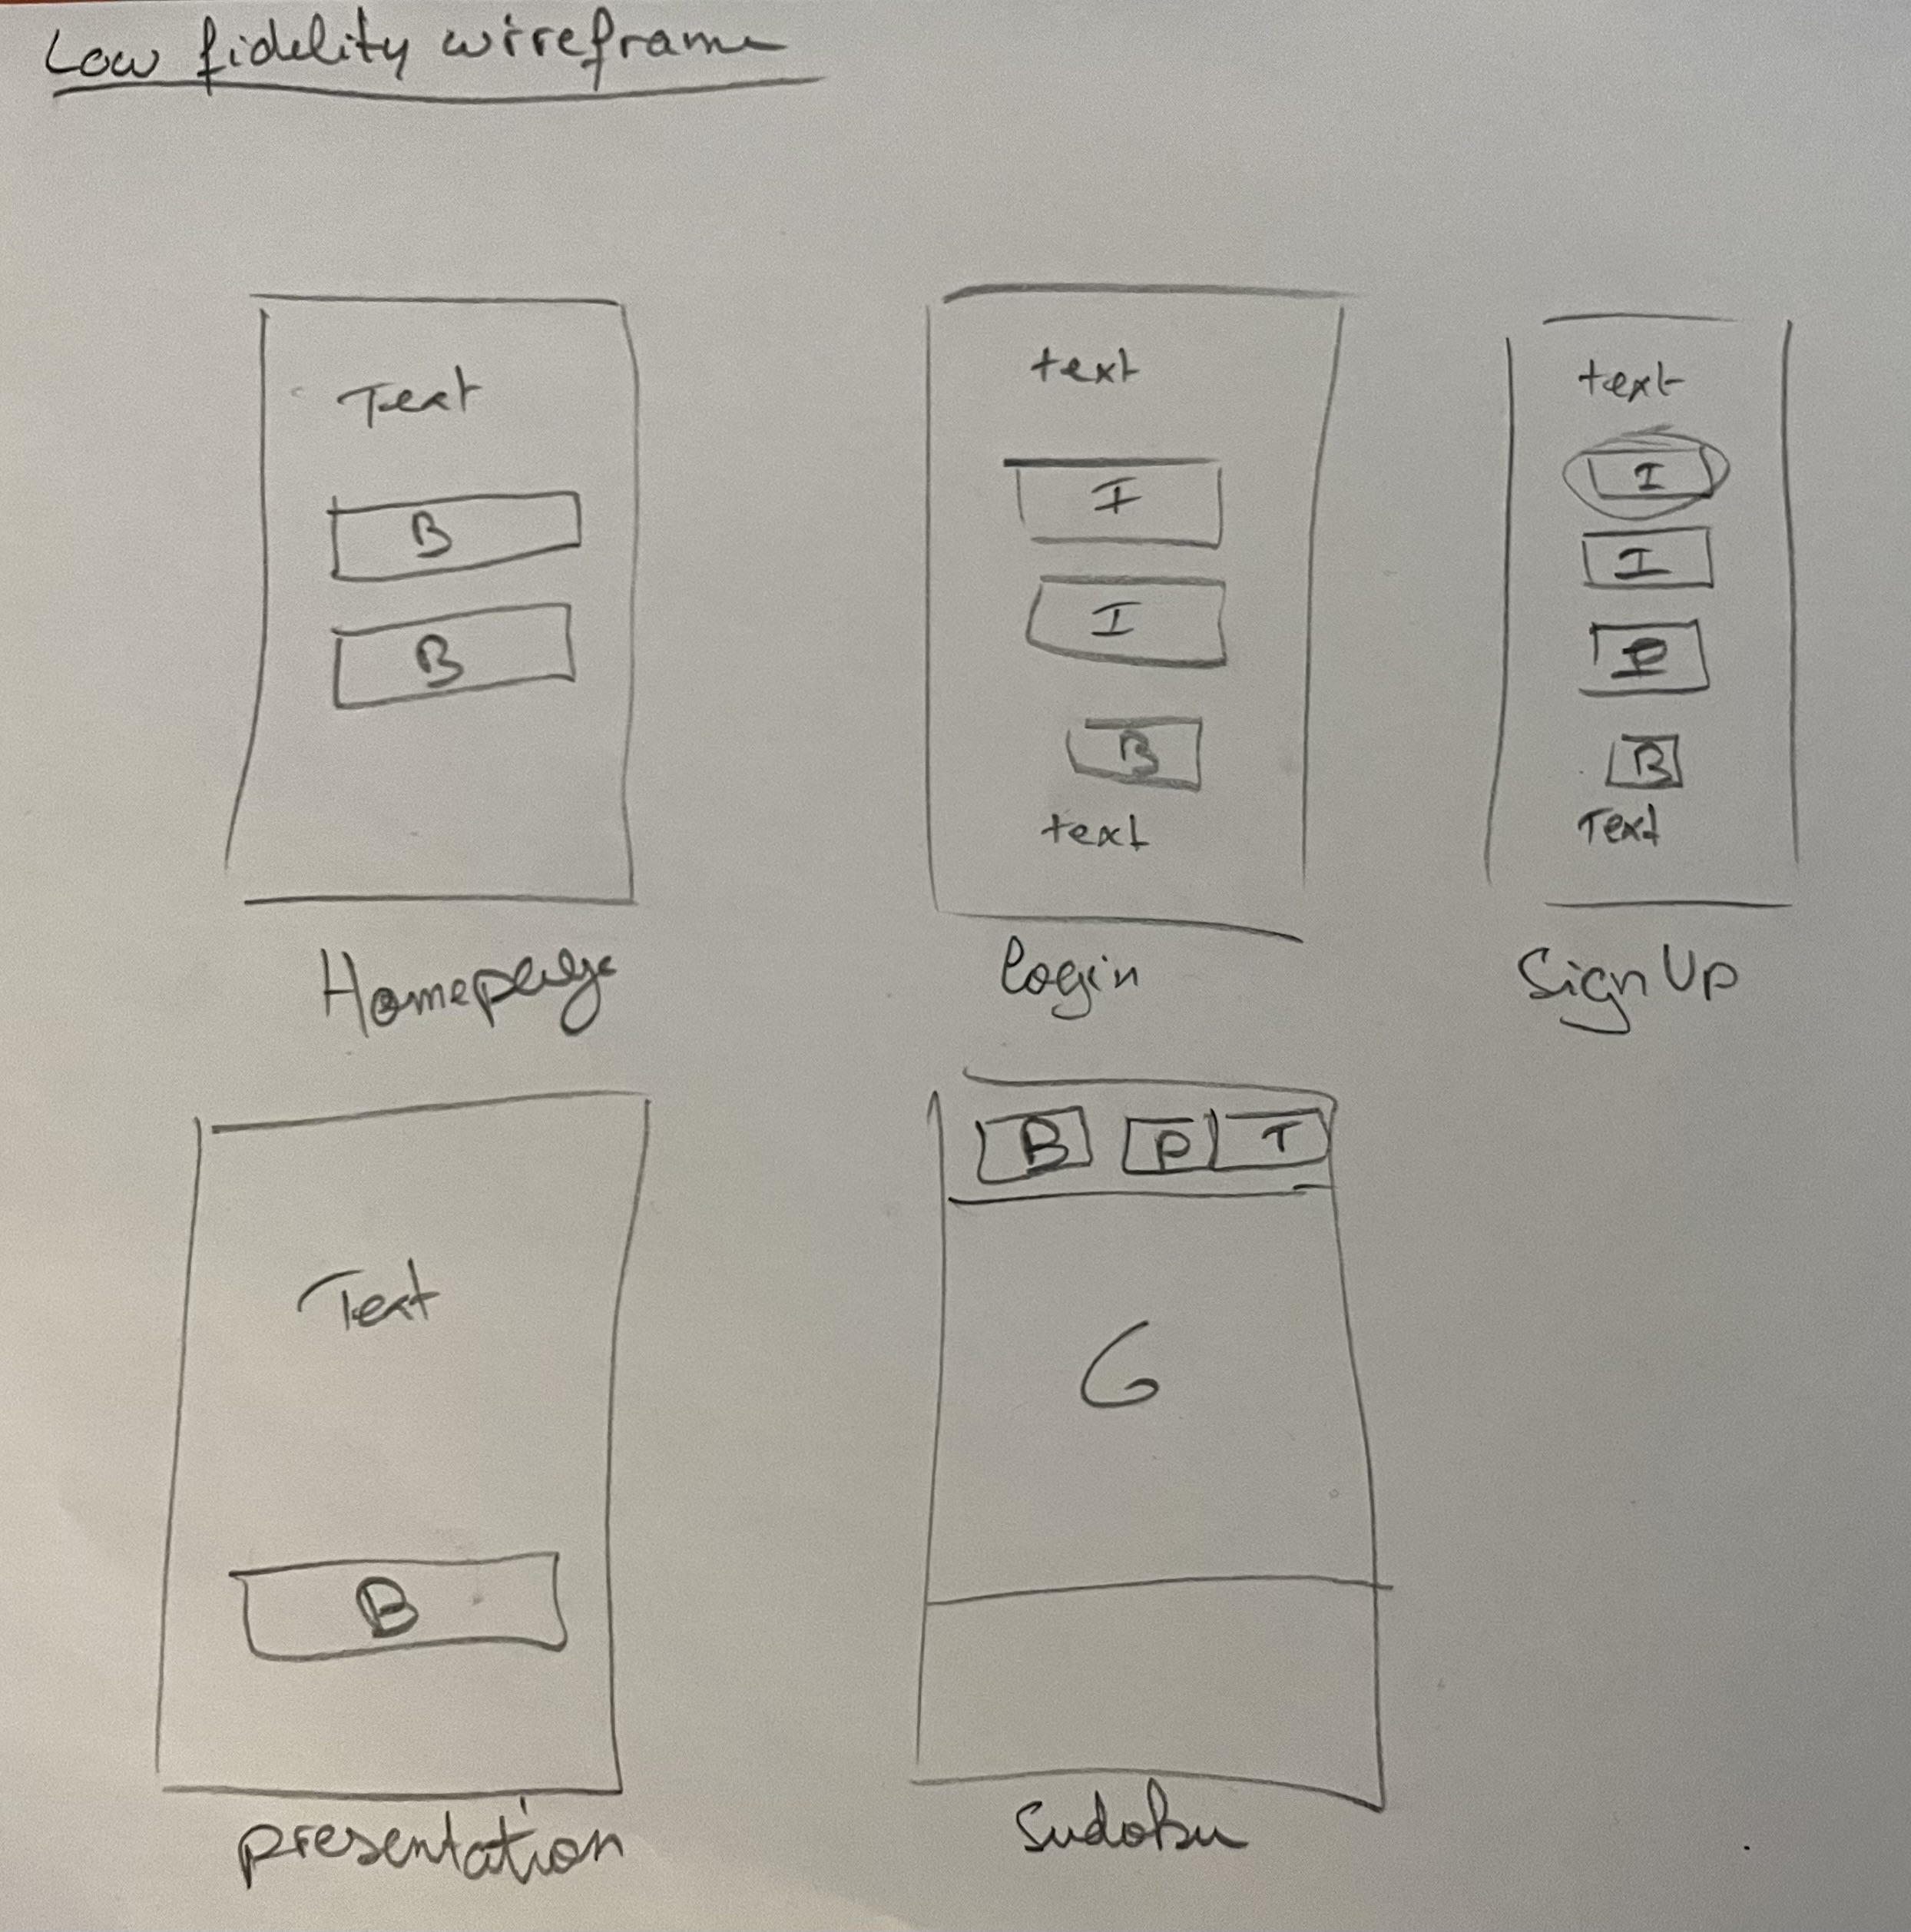 Low fidelity wireframe
Text
B
B
Homepage
text
I
I
B
text
login
text
I
I
B
Text
Sign Up
Text
B
presentation
B P T
G
Sudoku